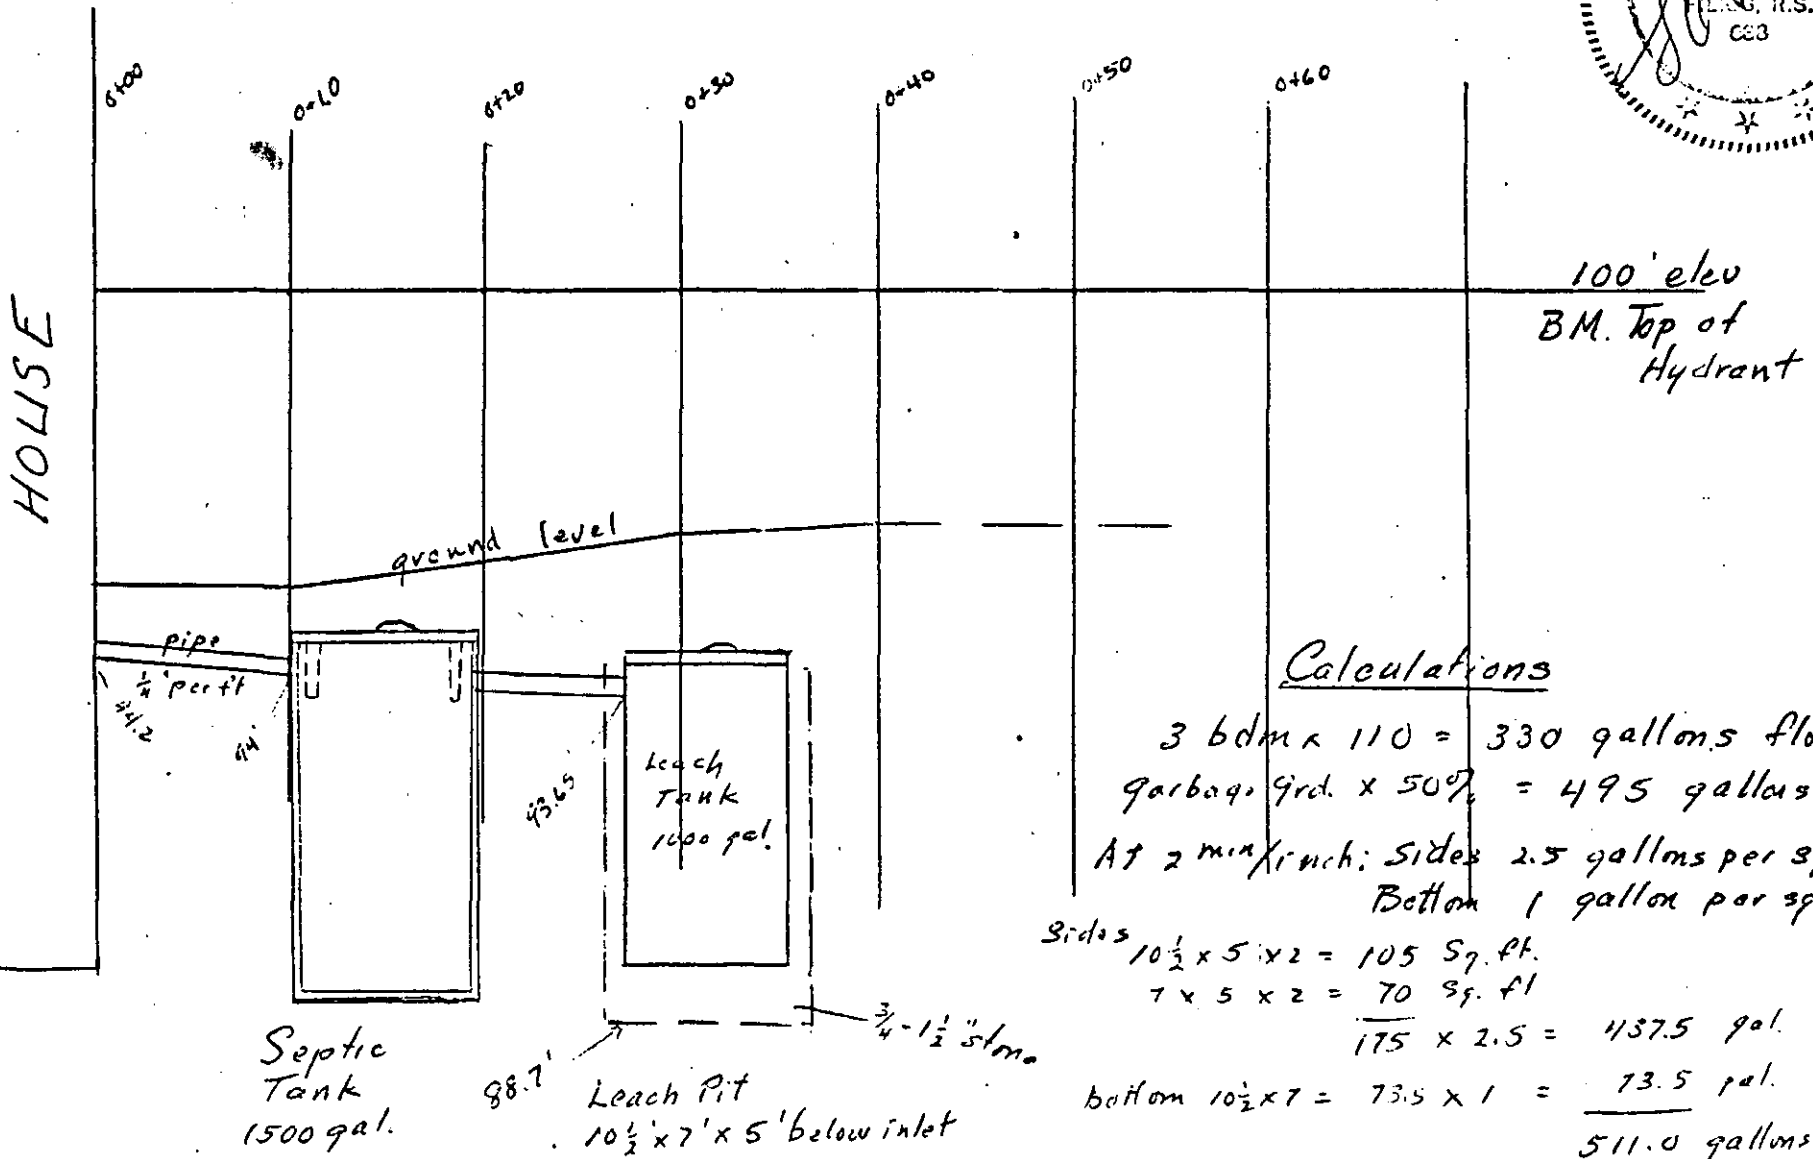 R.S.
0+00
0+10
0+20
0+30
0+40
0+50
0+60
HOUSE
100' elev
BM. Top of
Hydrant
ground level
pipe
1/4" per ft
94.2
94'
93.65
Leach
Tank
1000 gal.
Septic
Tank
1500 gal.
88.7'
Leach Pit
10 1/2' x 7' x 5' below inlet
3/4 - 1 1/2" stone
Calculations
3 bdm x 110 = 330 gallons flo
garbage grd. x 50% = 495 gallons
At 2 min/inch: Sides 2.5 gallons per s
Bottom 1 gallon per sq
Sides 10 1/2 x 5 x 2 = 105 Sq. ft.
7 x 5 x 2 = 70 Sq. ft
175 x 2.5 = 437.5 gal.
bottom 10 1/2 x 7 = 73.5 x 1 = 73.5 gal.
511.0 gallons